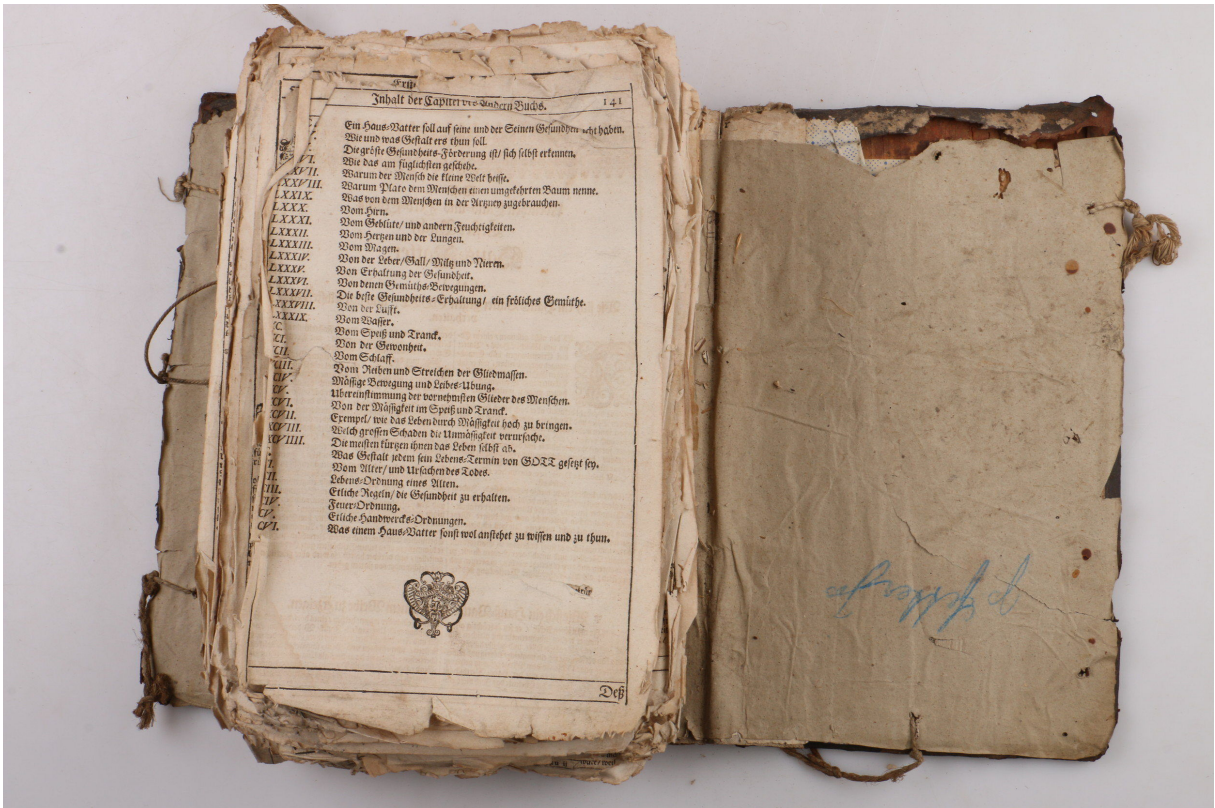 Inhalt der Capitel des Andern Buchs. 141
Ein Haus-Vatter soll auf seine und der Seinen Gesundheit acht haben.
Wie und was Gestalt ers thun soll.
Die gröste Gesundheits-Förderung ist/ sich selbst erkennen.
VI. Wie das am füglichsten geschehe.
XVII. Warum der Mensch die kleine Welt heisse.
XXVIII. Warum Plato dem Menschen einen umgekehrten Baum nenne.
LXXIX. Was von dem Menschen in der Artzney zugebrauchen.
LXXX. Vom Hirn.
LXXXI. Vom Geblüte/ und andern Feuchtigkeiten.
LXXXII. Vom Hertzen und der Lungen.
LXXXIII. Vom Magen.
LXXXIV. Von der Leber/ Gall/ Miltz und Nieren.
LXXXV. Von Erhaltung der Gesundheit.
LXXXVI. Von denen Gemüths-Bewegungen.
LXXXVII. Die beste Gesundheits-Erhaltung/ ein fröliches Gemüthe.
XXXVIII. Von der Lufft.
XXXIX. Vom Wasser.
XC. Vom Speiß und Tranck.
XCI. Von der Gewonheit.
CII. Vom Schlaff.
CIII. Vom Reiben und Streichen der Gliedmassen.
CIV. Mässige Bewegung und Leibes-Ubung.
CV. Ubereinstimmung der vornehmsten Glieder des Menschen.
CVI. Von der Mässigkeit im Speiß und Tranck.
CVII. Exempel/ wie das Leben durch Mässigkeit hoch zu bringen.
XCVIII. Welch grossen Schaden die Unmässigkeit verursache.
XCVIIII. Die meisten kürtzen ihnen das Leben selbst ab.
Was Gestalt jedem sein Lebens-Termin von GOTT gesetzt sey.
I. Vom Alter/ und Ursachen des Todes.
II. Lebens-Ordnung eines Alten.
III. Etliche Regeln/ die Gesundheit zu erhalten.
CIV. Feuer-Ordnung.
CV. Etliche Handwercks-Ordnungen.
CVI. Was einem Haus-Vatter sonst wol anstehet zu wissen und zu thun.
Deß